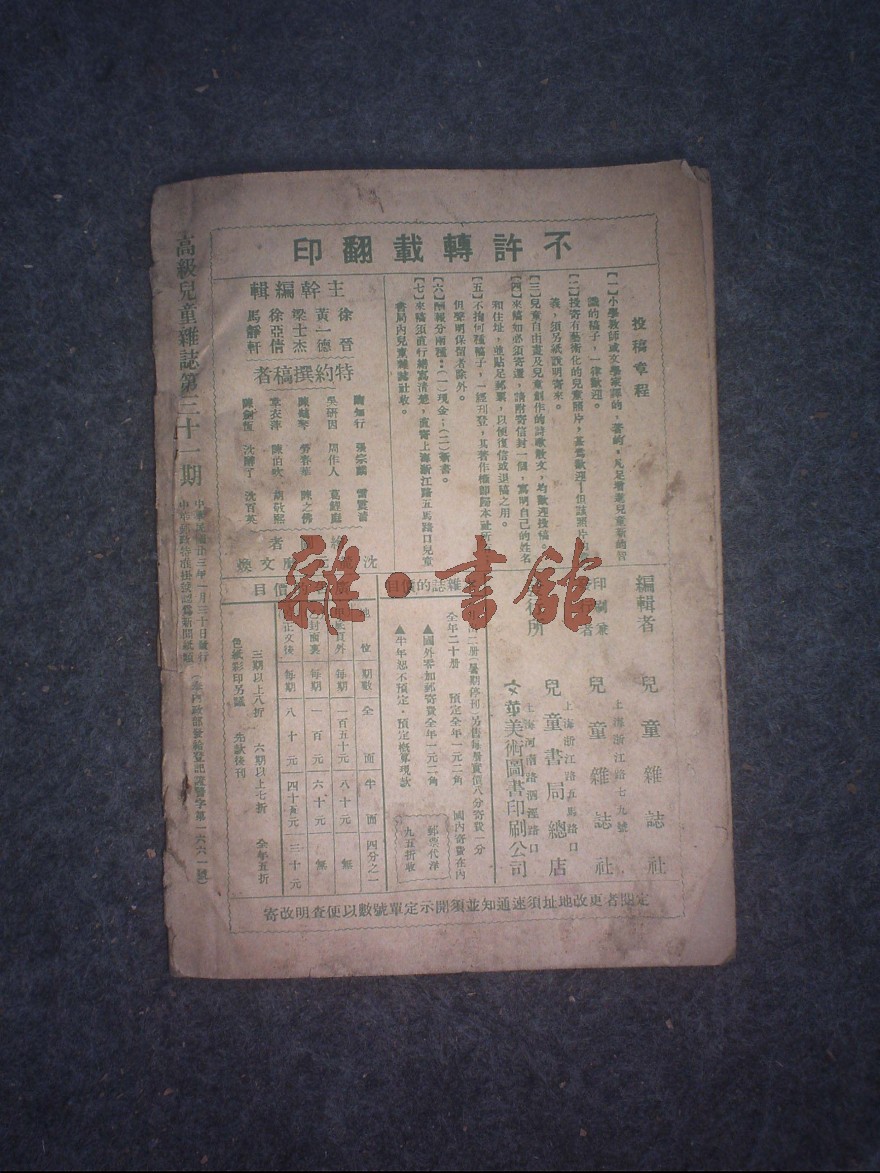 不許轉載翻印
投稿章程
【一】小學教師或文學家譯的，著的，凡足增進兒童新的智
識的稿子，一律歡迎。
【二】投寄有藝術化的兒童照片，甚為歡迎！但該照片
義，須另紙說明寄來。
【三】兒童自由畫及兒童創作的詩歌散文，均歡迎投稿。
【四】來稿如必須寄還，請附寄信封一個，寫明自己的姓名
和住址，並貼足郵票，以便復信或退稿之用。
【五】不拘何種稿子，一經刊登，其著作權即歸本社所
但聲明保留者除外。
【六】酬報分兩種：（一）現金；（二）新書。
【七】來稿須直行繕寫清楚，直寄上海浙江路五馬路口兒童
書局內兒童雜誌社收。
主幹編輯
徐晉
黃一德
梁士杰
徐亞倩
馬靜軒
特約撰稿者
陶知行 張宗麟
吳研因 周作人
陳鶴琴
章衣萍 陳伯吹 胡敬熙
陳劍恆 沈百英
編輯者 兒童雜誌社
上海浙江路七九號
兒童雜誌社
上海浙江路五馬路口
兒童書局總店
上海河南路泗涇路口
文華美術圖書印刷公司
雜誌的價目
全年二十册 預定全年一元二角 國內寄費在內
▲國外零加郵寄費全年一元二角
▲半年恕不預定・預定概算現款
郵票代洋
九五折收
地位 期數 全面 半面 四分之一
每期 一百五十元 八十元 無
每期 一百元 六十元 無
正文後 每期 八十元 四十五元 三十元
三期以上八折 六期以上七折 全年五折
色紙彩印另議 先款後刊
定閱者更改地址須速通知並須開示定單號數以便查明改寄
高級兒童雜誌第三十一期
中華民國廿三年一月三十日發行
中華郵政特准掛號認為新聞紙類
（奉內政部發給登記證警字第一六六一號）
雜・書館